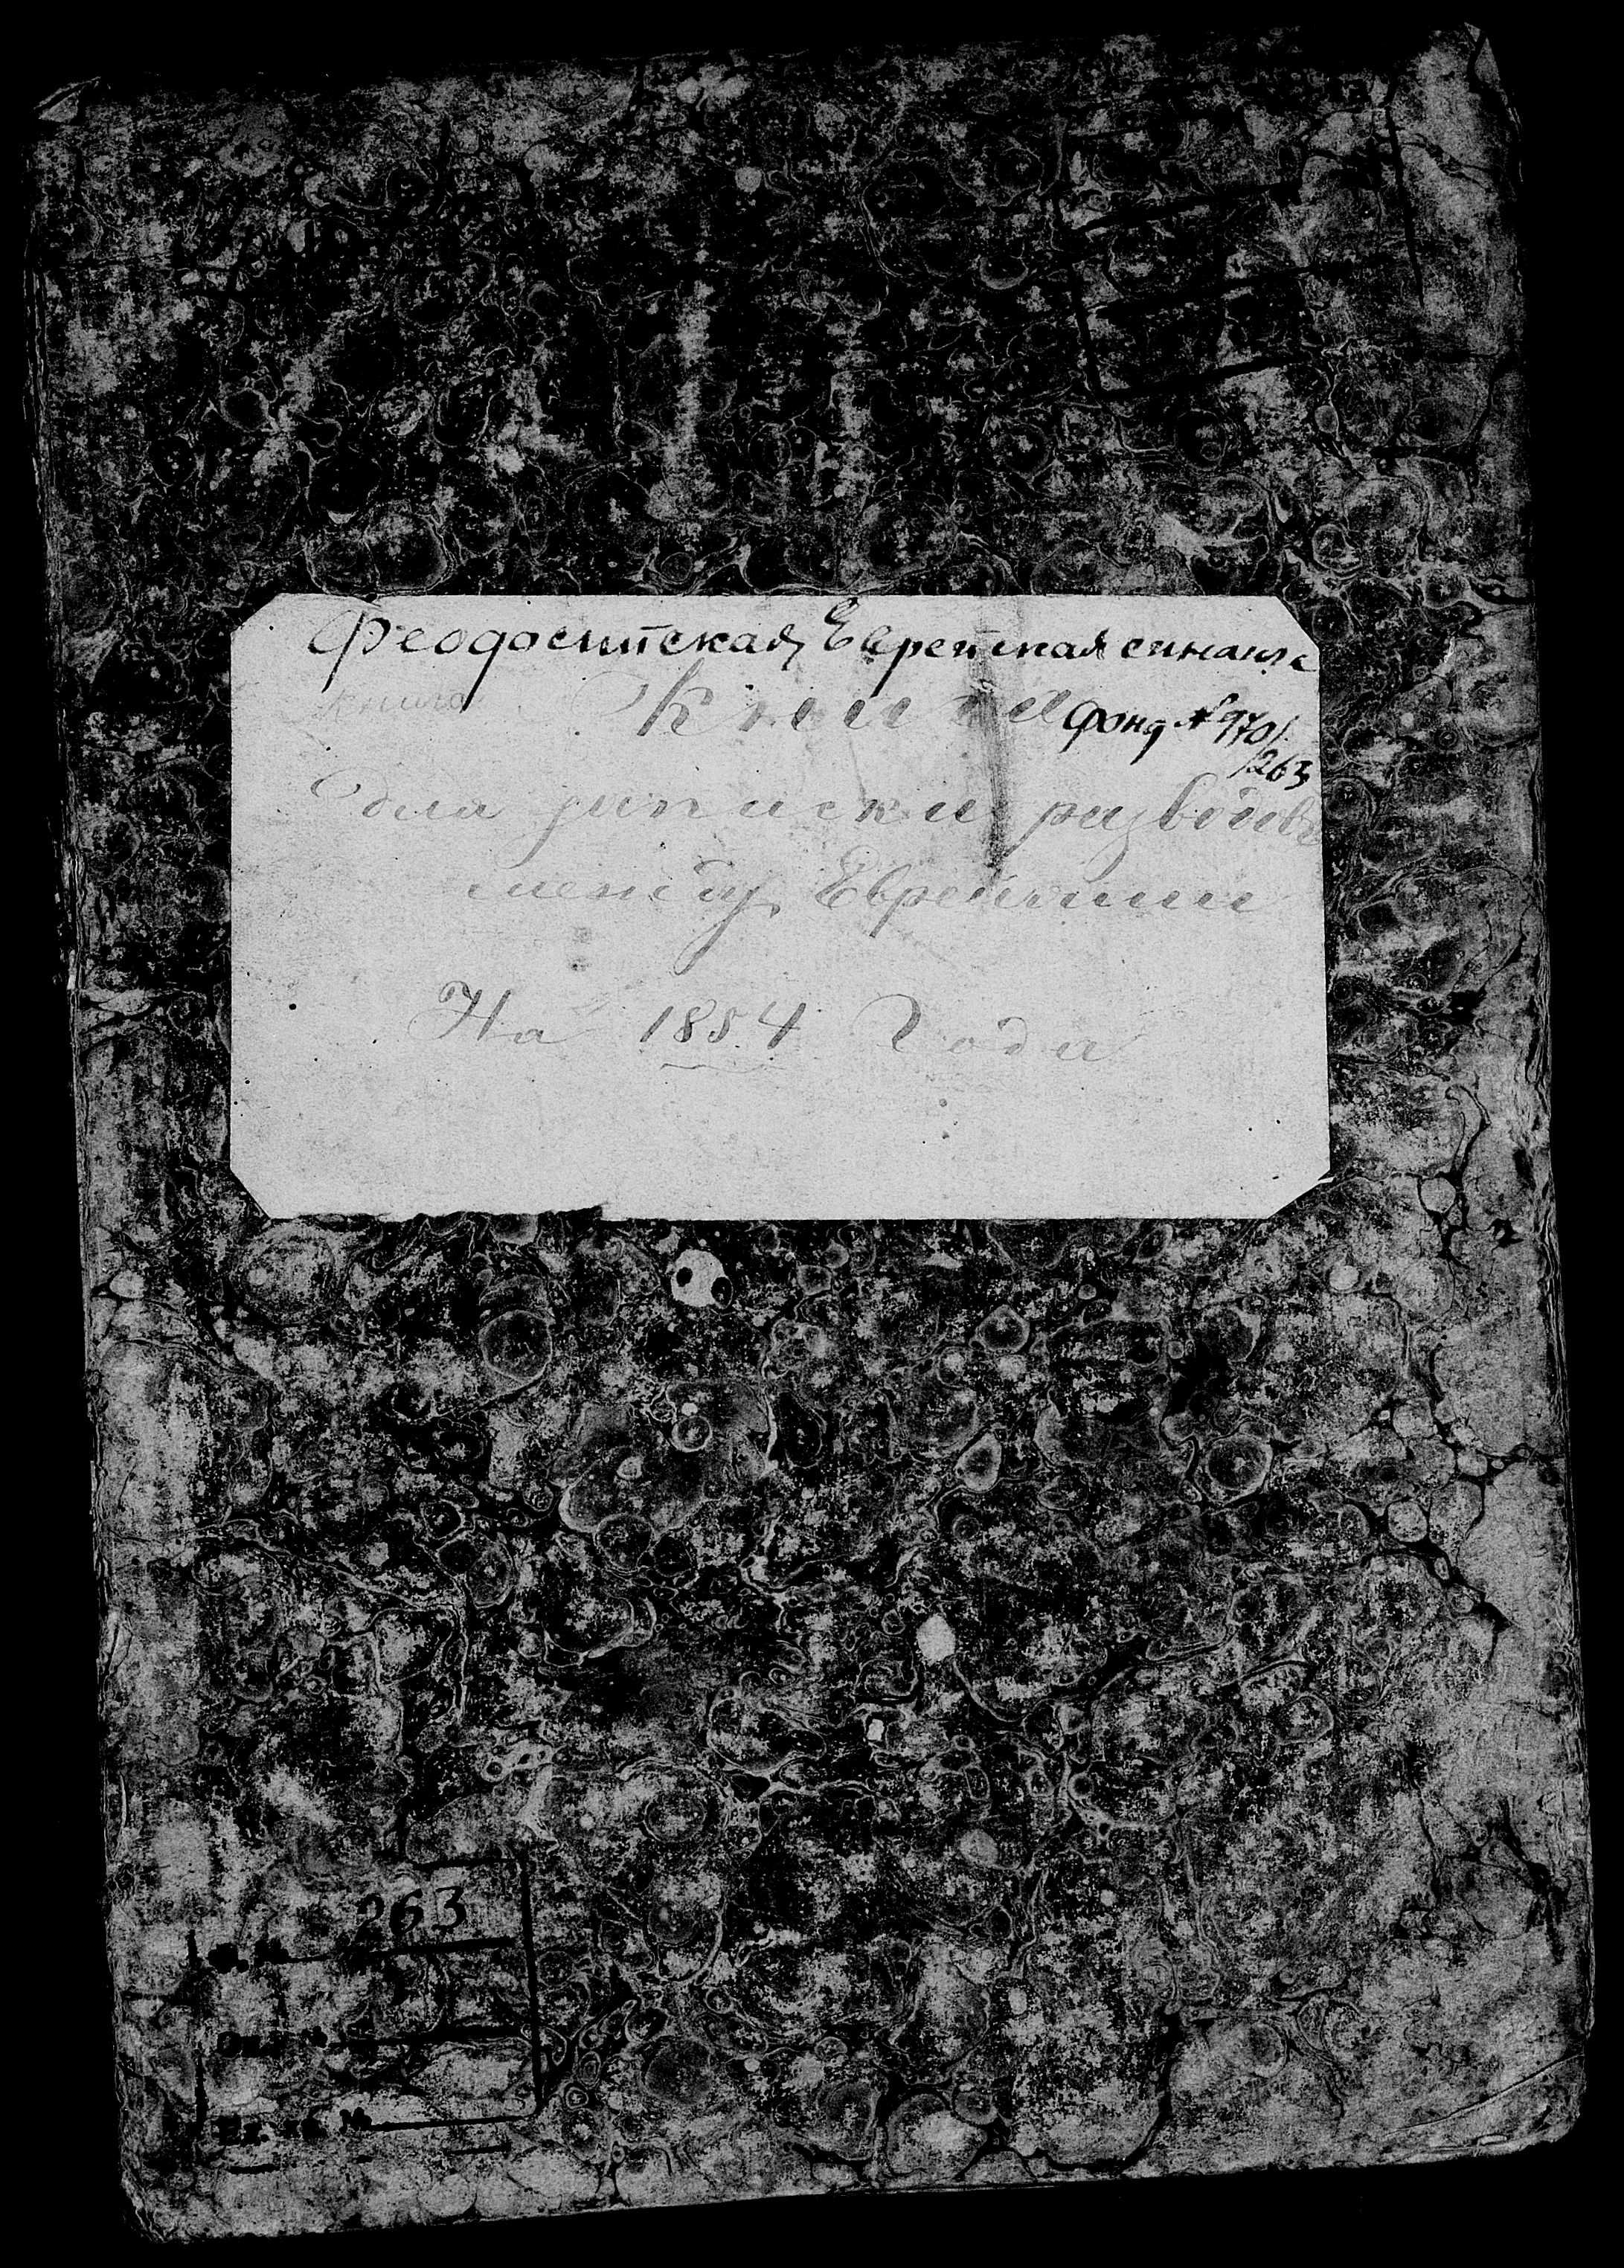 Феодосийская Еврейская синагога
книга
Книга
фонд № 970/
/263
для записки разводовъ
между Евреями
На 1854 Года
263